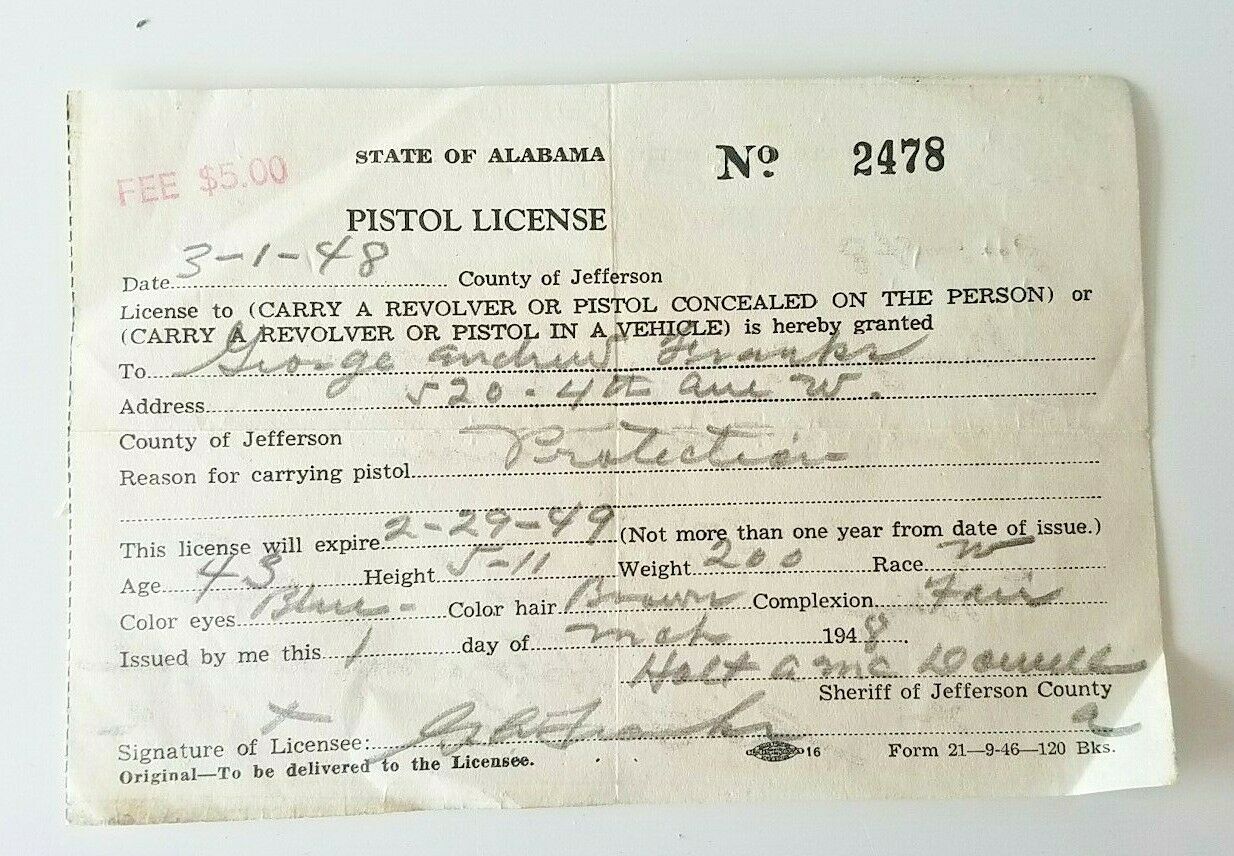 STATE OF ALABAMA
Nº 2478
FEE $5.00
PISTOL LICENSE
Date 3-1-48 County of Jefferson
License to (CARRY A REVOLVER OR PISTOL CONCEALED ON THE PERSON) or
(CARRY A REVOLVER OR PISTOL IN A VEHICLE) is hereby granted
To George Andrew Franks
Address 520 - 4th Ave W.
County of Jefferson
Reason for carrying pistol Protection
This license will expire 2-29-49 (Not more than one year from date of issue.)
Age 43 Height 5-11 Weight 200 Race W
Color eyes Blue - Color hair Brown Complexion Fair
Issued by me this 1 day of Mch 1948.
Holt A McDowell
Sheriff of Jefferson County
Signature of Licensee: G A Franks
16 Form 21—9-46—120 Bks.
Original—To be delivered to the Licensee.